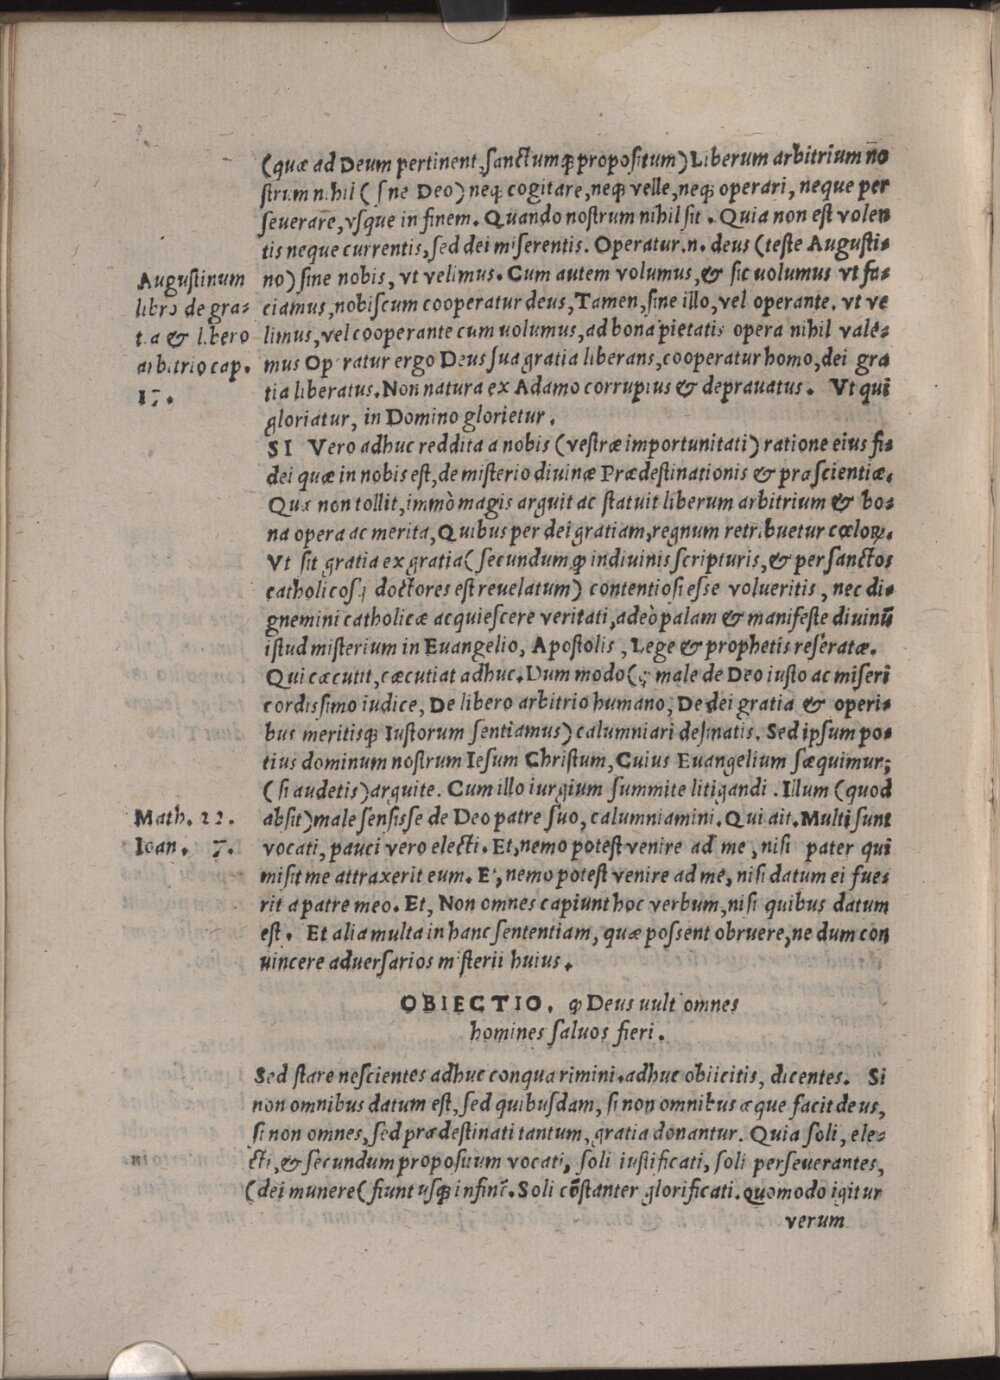 (quæ ad Deum pertinent, sanctumq́ propositum) Liberum arbitrium nō
strum nihil (sine Deo) neq́ cogitare, neq́ velle, neq́ operari, neque per
seuerare, vsque in finem. Quando nostrum nihil sit. Quia non est volen
tis neque currentis, sed dei miserentis. Operatur.n. deus (teste Augusti-
no) sine nobis, vt velimus. Cum autem volumus, & sic uolumus vt fa-
ciamus, nobiscum cooperatur deus, Tamen, sine illo, vel operante. vt ve
limus, vel cooperante cum uolumus, ad bona pietatis opera nihil vale-
mus Operatur ergo Deus sua gratia liberans, cooperatur homo, dei gra
tia liberatus. Non natura ex Adamo corruptus & deprauatus. Vt qui
gloriatur, in Domino glorietur.
Augustinum
libro de gra-
tia & libero
arbitrio cap.
17.
SI Vero adhuc reddita a nobis (vestræ importunitati) ratione eius fi-
dei quæ in nobis est, de misterio diuinæ Prædestinationis & præscientiæ.
Quæ non tollit, immò magis arguit ac statuit liberum arbitrium & bo-
na opera ac merita, Quibus per dei gratiam, regnum retribuetur cœloꝝ.
Vt sit gratia ex gratia (secundum q́ in diuinis scripturis, & per sanctos
catholicosq́ doctores est reuelatum) contentiosi esse volueritis, nec di-
gnemini catholicæ acquiescere veritati, adeò palam & manifeste diuinū
istud misterium in Euangelio, Apostolis, Lege & prophetis reseratæ.
Qui cæcutit, cæcutiat adhuc. Dum modo (q́ male de Deo iusto ac miseri
cordissimo iudice, De libero arbitrio humano, De dei gratia & operi-
bus meritisq́ Iustorum sentiamus) calumniari desinatis. Sed ipsum po-
tius dominum nostrum Iesum Christum, Cuius Euangelium sæquimur;
(si audetis) arguite. Cum illo iurgium summite litigandi. Illum (quod
absit) male sensisse de Deo patre suo, calumniamini. Qui ait. Multi sunt
vocati, pauci vero electi. Et, nemo potest venire ad me, nisi pater qui
misit me attraxerit eum. Et, nemo potest venire ad me, nisi datum ei fue-
rit a patre meo. Et, Non omnes capiunt hoc verbum, nisi quibus datum
est. Et alia multa in hanc sententiam, quæ possent obruere, ne dum con
uincere aduersarios misterii huius.
Math. 22.
Ioan. 7.
OBIECTIO. ꝙ Deus uult omnes
homines saluos fieri.
Sed stare nescientes adhuc conquærimini. adhuc obiicitis, dicentes. Si
non omnibus datum est, sed quibusdam, si non omnibus æque facit deus,
si non omnes, sed prædestinati tantum, gratia donantur. Quia soli, ele-
cti, & secundum propositum vocati, soli iustificati, soli perseuerantes,
(dei munere( fiunt usq́ in finē. Soli cōstanter glorificati. quomodo igitur
verum